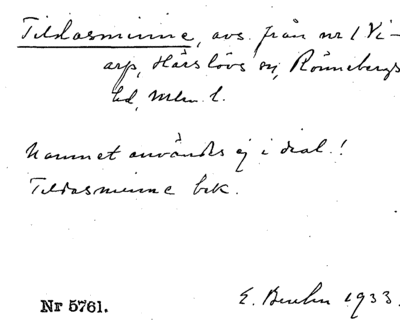 Tildasminne, avs. från nr 1 Vi-
arp, Härslövs sn, Rönnebergs
hd, Mlm. l.
Namnet användes ej i dial.!
Tildasminne bek.
E. 1933.
Nr 5761.